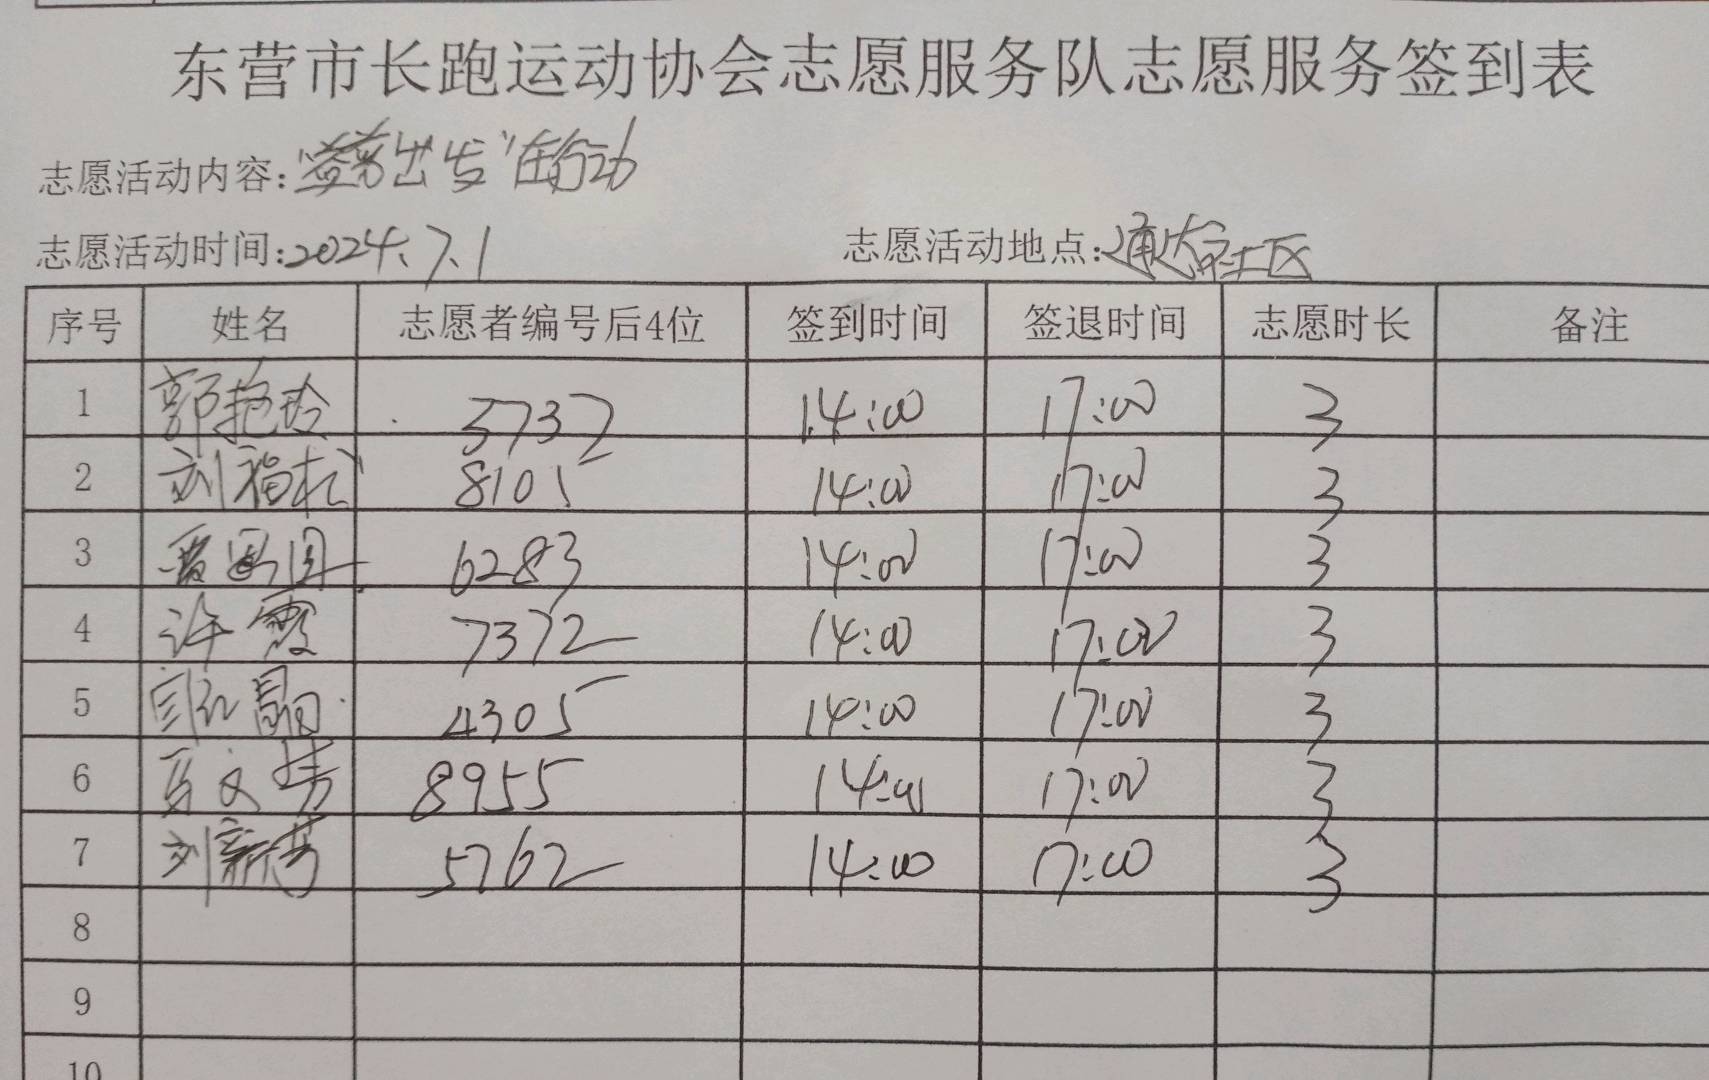 东营市长跑运动协会志愿服务队志愿服务签到表
志愿活动内容:出发 在行动
志愿活动时间:2024.7.1 志愿活动地点:通达社区
序号 姓名 志愿者编号后4位 签到时间 签退时间 志愿时长 备注
1 郭艳玲 5737 14:00 17:00 3
2 刘福 8105 14:00 17:00 3
3 6283 14:00 17:00 3
4 许霞 7372 14:00 17:00 3
5 4305 14:00 17:00 3
6 文 8955 14:00 17:00 3
7 刘新 5762 14:00 17:00 3
8
9
10